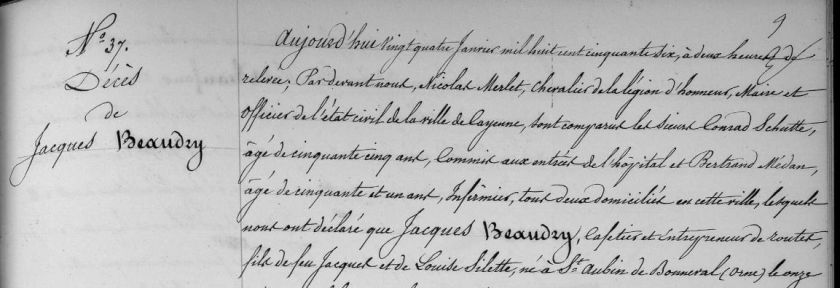 9
N° 37.
Décès
de
Jacques Beaudry
Aujourd'hui vingt quatre Janvier mil huit cent cinquante six, à deux heures de
relevée; Pardevant nous, Nicolas Merlet, Chevalier de la légion d'honneur, Maire et
Officier de l'état civil de la ville de Cayenne, sont comparus les sieurs Conrad Schutte,
âgé de cinquante cinq ans, Commis aux entrées de l'hôpital et Bertrand Médan,
âgé de cinquante et un ans, Infirmier, tous deux domiciliés en cette ville, lesquels
nous ont déclaré que Jacques Beaudry, Cafetier et entrepreneur de routes,
fils de feu Jacques et de Louise Silette, né à St. Aubin de Bonneval (Orne) le onze